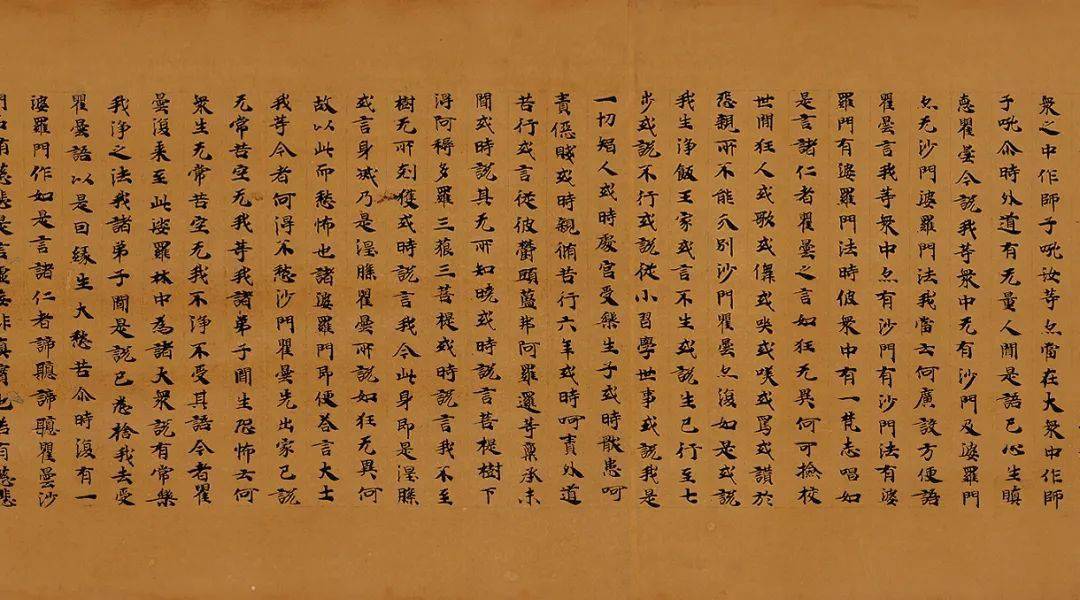 衆之中作師子吼汝等亦當在大衆中作師
子吼尒時外道有无量人聞是語已心生瞋
恚瞿曇今說我等衆中无有沙門及婆羅門
亦无沙門婆羅門法我當云何廣設方便語
瞿曇言我等衆中亦有沙門有沙門法有婆
羅門有婆羅門法時彼衆中有一梵志唱如
是言諸仁者瞿曇之言如狂无異何可撿挍
世間狂人或歌或儛或哭或咲或罵或讚於
恐親所不能分別沙門瞿曇亦復如是或說
我生淨飯王家或言不生或說生已行至七
步或說不行或說從小習學世事或說我是
一切智人或時處宮受樂生子或時猒患呵
責惡賤或時親脩苦行六年或時呵責外道
苦行或言從彼欝頭藍弗阿羅邏等稟承未
聞或時說其无所知曉或時說言菩提樹下
得阿耨多羅三藐三菩提或時說言我不至
樹无所剋獲或時說言我今此身即是涅槃
或言身滅乃是涅槃瞿曇所說如狂无異何
故以此而愁怖也諸婆羅門即便荅言大士
我等今者何得不愁沙門瞿曇先出家已說
无常苦空无我等我諸弟子聞生恐怖云何
衆生无常苦空无我不淨不受其語今者瞿
曇復来至此娑羅林中為諸大衆說有常樂
我淨之法我諸弟子聞是說已悉捨我去受
瞿曇語以是因緣生大愁苦尒時復有一
婆羅門作如是言諸仁者諦聽諦聽瞿曇沙
門名有慈悲是言虛妄非真實也若有慈悲